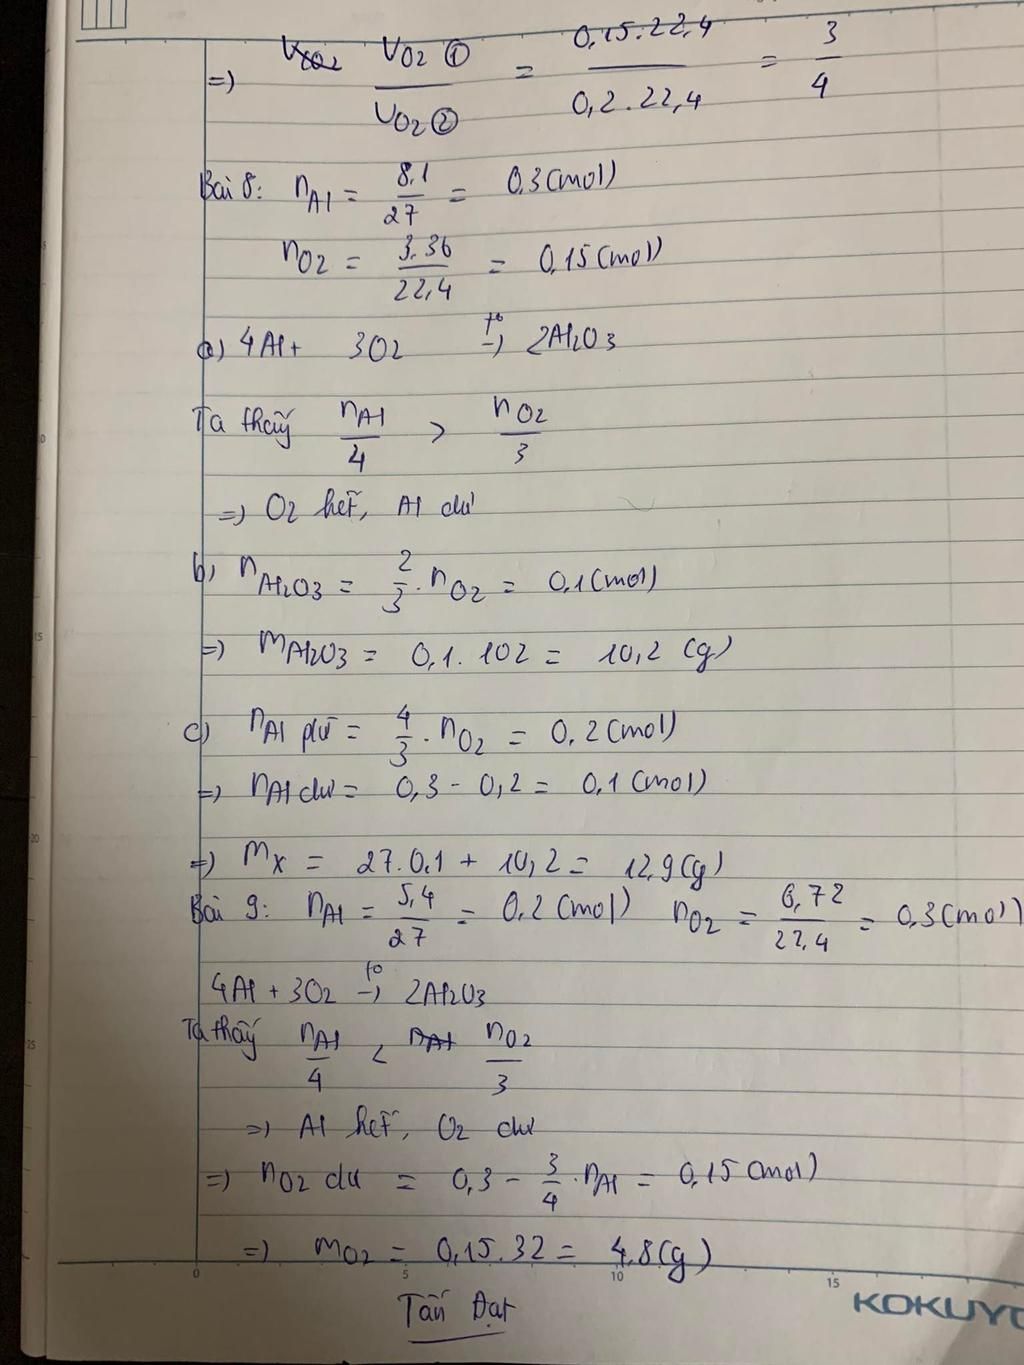 => VO2 ① / VO2 ② = 0,15.22,4 / 0,2.22,4 = 3/4
Bài 8: nAl = 8,1/27 = 0,3(mol)
nO2 = 3,36/22,4 = 0,15(mol)
a) 4Al + 3O2 t° → 2Al2O3
Ta thấy nAl/4 > nO2/3
=> O2 hết, Al dư
b) nAl2O3 = 2/3 . nO2 = 0,1(mol)
=> mAl2O3 = 0,1.102 = 10,2 (g)
c) nAl pư = 4/3 . nO2 = 0,2(mol)
=> nAl dư = 0,3 - 0,2 = 0,1(mol)
=> mX = 27.0,1 + 10,2 = 12,9(g)
Bài 9: nAl = 5,4/27 = 0,2(mol) nO2 = 6,72/22,4 = 0,3(mol)
4Al + 3O2 t° → 2Al2O3
Ta thấy nAl/4 < nO2/3
=> Al hết, O2 dư
=> nO2 dư = 0,3 - 3/4 . nAl = 0,15(mol)
=> mO2 = 0,15.32 = 4,8(g)
0 5 10 15
Tấn Đạt
KOKUYO